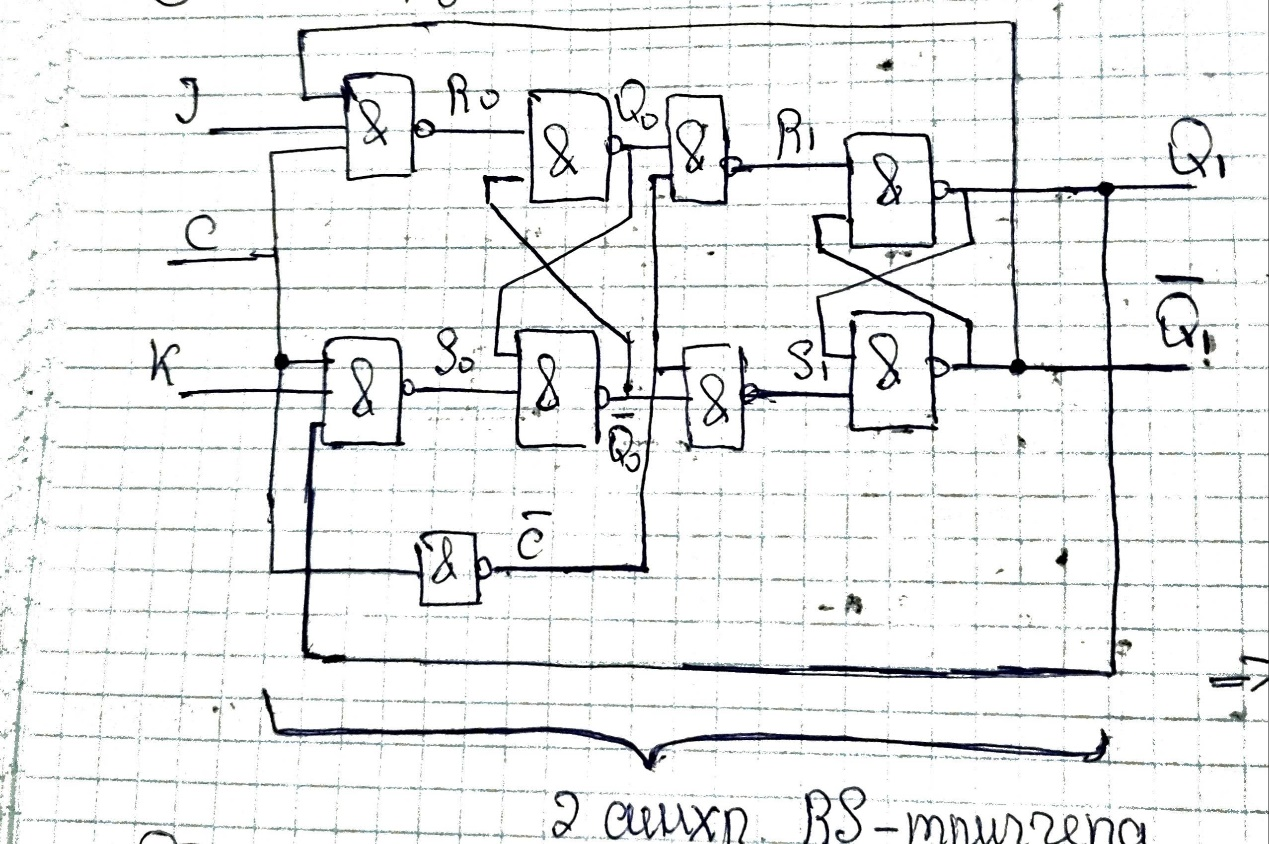 J
&
R0
&
Q0
&
R1
&
Q1
C
K
&
S0
&
Q̅0
&
S1
&
Q̅1
&
C̅
=>
2 синхр. RS-триггера